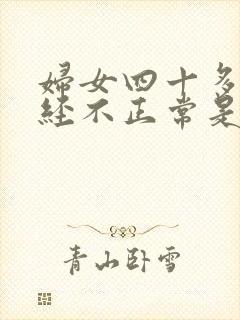 婦女四十多
經不正常是
青山卧雪